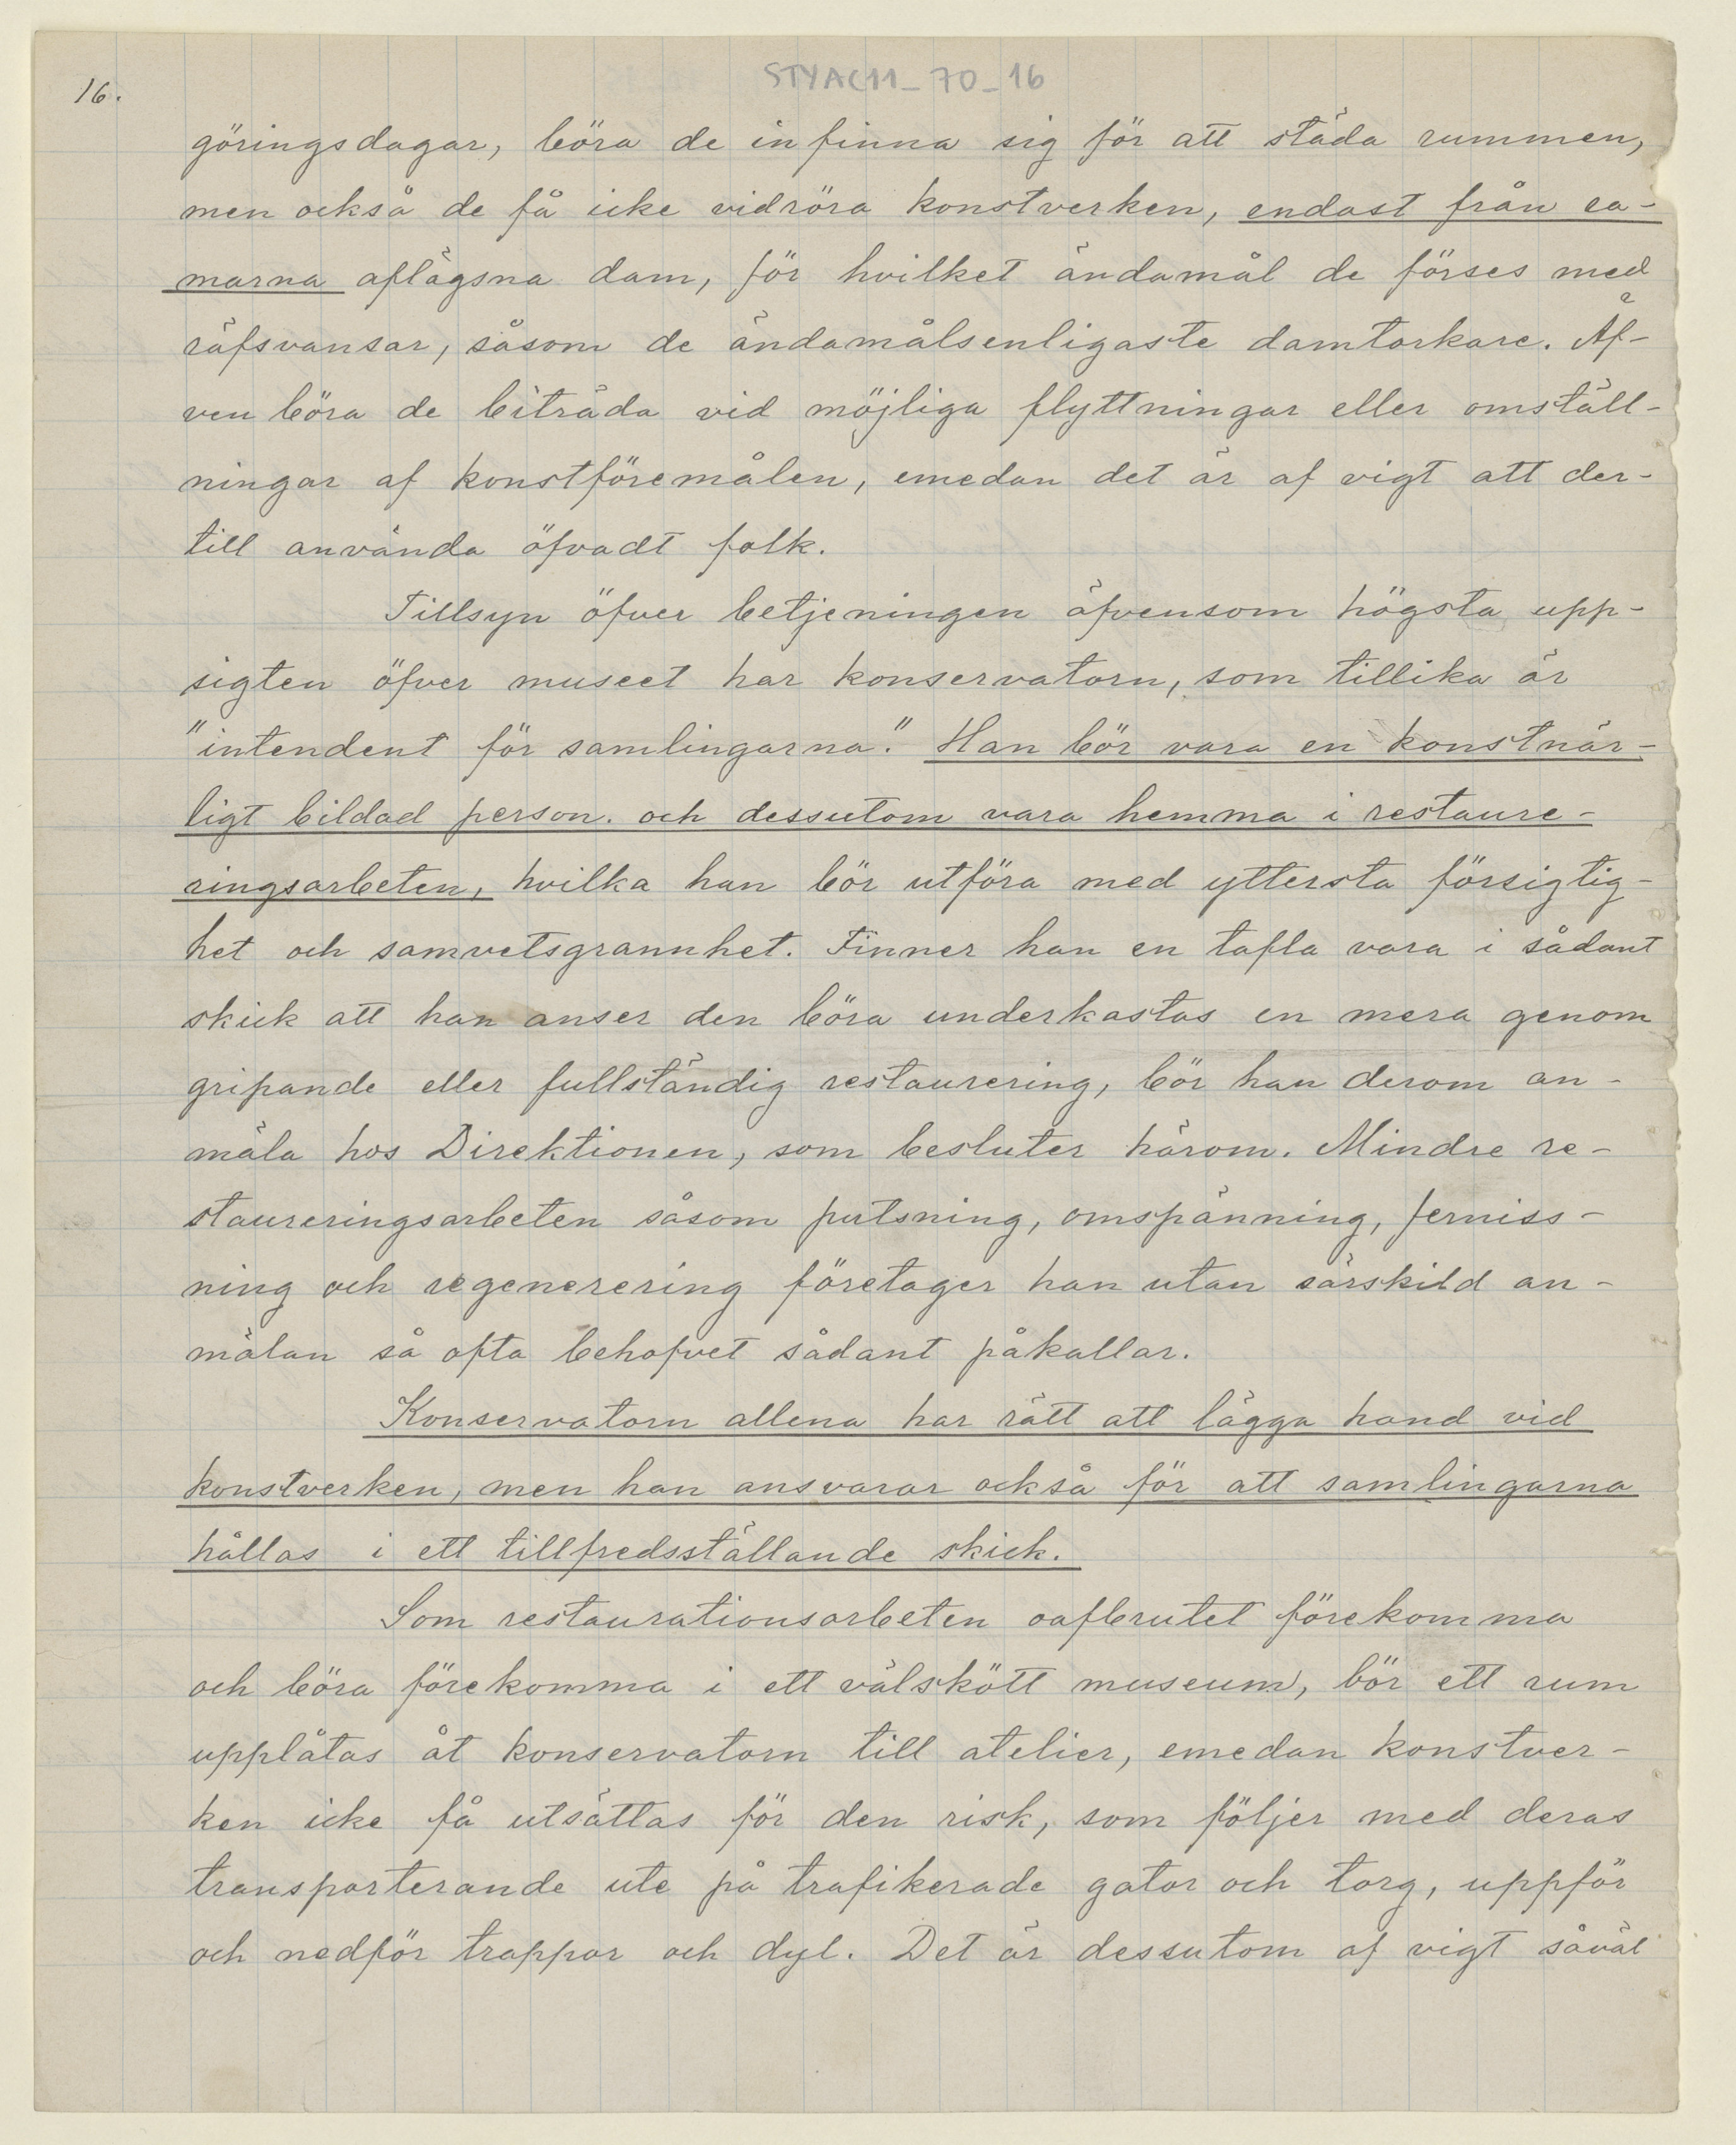 STYAC11_70_16
16.
göringsdagar, böra de infinna sig för att städa rummen,
men också de få icke vidröra konstverken, endast från ra-
marna aflägsna dam, för hvilket ändamål de förses med
räfsvansar, såsom de ändamålsenligaste damtorkare. Äf-
ven böra de biträda vid möjliga flyttningar eller omställ-
ningar af konstföremålen, emedan det är af vigt att der-
till använda öfvadt folk.
Tillsyn öfver betjeningen äfvensom högsta upp-
sigten öfver museet har konservatorn, som tillika är
"intendent för samlingarna." Han bör vara en konstnär-
ligt bildad person. och dessutom vara hemma i restaure-
ringsarbeten, hvilka han bör utföra med yttersta försigtig-
het och samvetsgrannhet. Finner han en tafla vara i sådant
skick att han anser den böra underkastas en mera genom
gripande eller fullständig restaurering, bör han derom an-
mäla hos Direktionen, som besluter härom. Mindre re-
staureringsarbeten såsom putsning, omspänning, ferniss-
ning och regenerering företager han utan särskild an-
mälan så ofta behofvet sådant påkallar.
Konservatorn allena har rätt att lägga hand vid
konstverken, men han ansvarar också för att samlingarna
hållas i ett tillfredsställande skick.
Som restaurationsarbeten oafbrutet förekomma
och böra förekomma i ett välskött museum, bör ett rum
upplåtas åt konservatorn till atelier, emedan konstver-
ken icke få utsättas för den risk, som följer med deras
transporterande ute på trafikerade gator och torg, uppför
och nedför trappor och dyl. Det är dessutom af vigt såväl